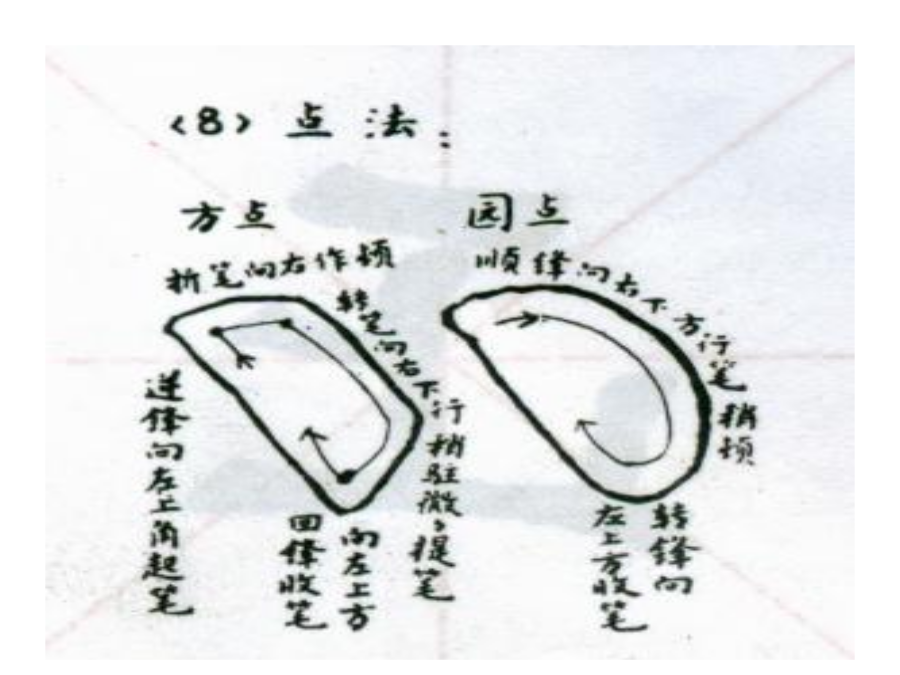 (8) 点法:
方点
折笔向右作顿
转笔向右下行稍驻微微提笔
逆锋向左上角起笔
向左上方
回锋收笔
园点
顺锋向右下方行笔稍顿
转锋向
左上方收笔